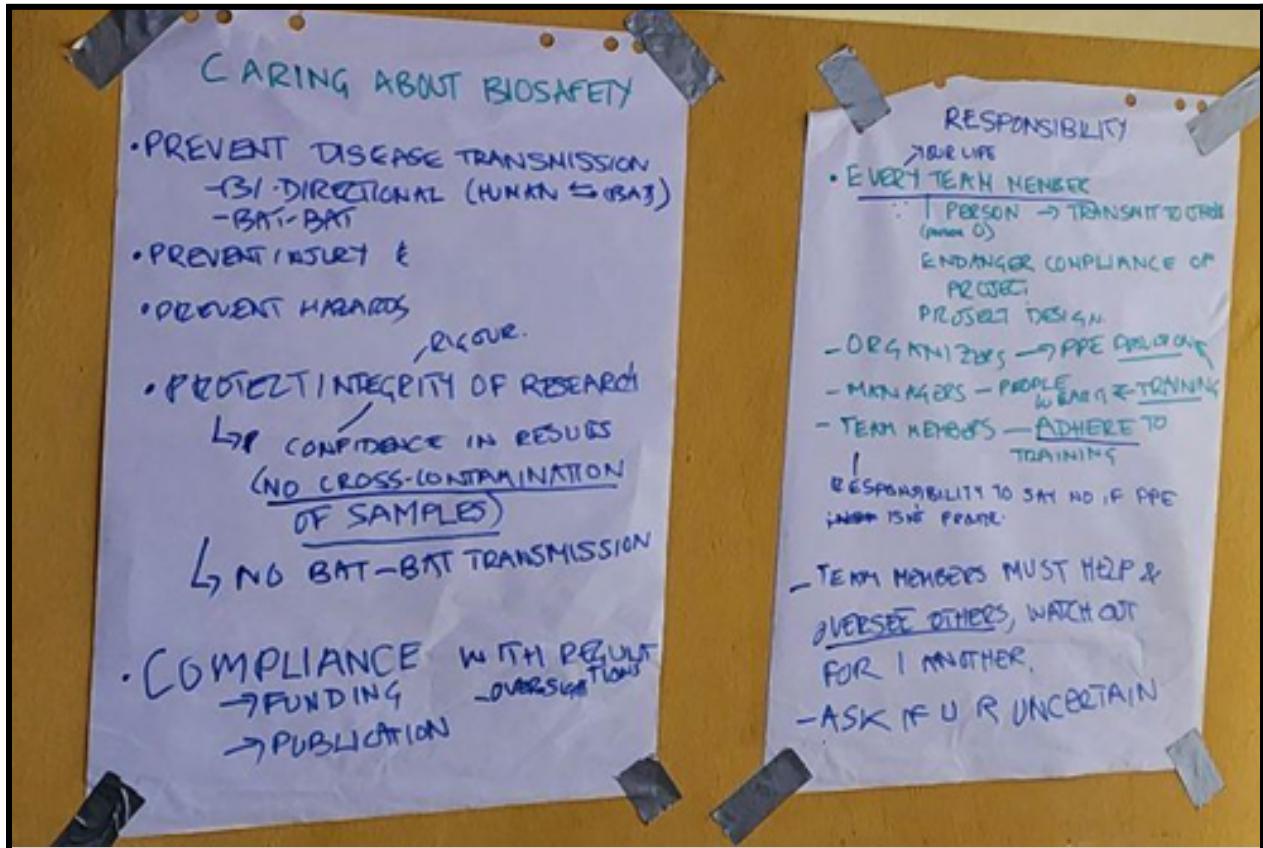 CARING ABOUT BIOSAFETY
• PREVENT DISEASE TRANSMISSION
- BI-DIRECTIONAL (HUMAN ⇆ BAT)
- BAT-BAT
• PREVENT INJURY &
• PREVENT HAZARDS
RIGOUR.
• PROTECT INTEGRITY OF RESEARCH
↳ CONFIDENCE IN RESULTS
(NO CROSS-CONTAMINATION
OF SAMPLES)
↳ NO BAT-BAT TRANSMISSION
• COMPLIANCE WITH REGULATIONS
→ FUNDING - OVERSIGHT
→ PUBLICATION
RESPONSIBILITY
OUR LIFE
• EVERY TEAM MEMBER
1 PERSON → TRANSMIT TO OTHERS
(person 0)
ENDANGER COMPLIANCE OF
PROJECT
PROJECT DESIGN.
- ORGANIZERS → PPE
- MANAGERS - PEOPLE WEAR IT ← TRAINING
- TEAM MEMBERS - ADHERE TO
TRAINING
RESPONSIBILITY TO SAY NO IF PPE
ISN'T
- TEAM MEMBERS MUST HELP &
OVERSEE OTHERS, WATCH OUT
FOR 1 ANOTHER.
- ASK IF U R UNCERTAIN